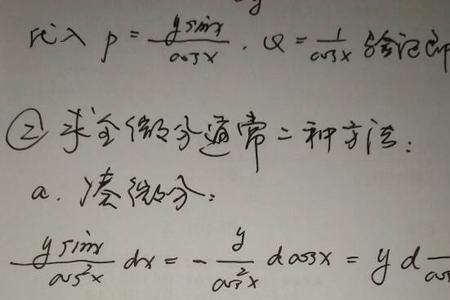 代入 P = \frac{y sinx}{cos x} . Q = \frac{1}{cos x} 验证即
② 求全微分通常二种方法:
a. 凑微分:
\frac{y sinx}{cos²x} dx = - \frac{y}{cos²x} d cosx = y d \frac{}{cos